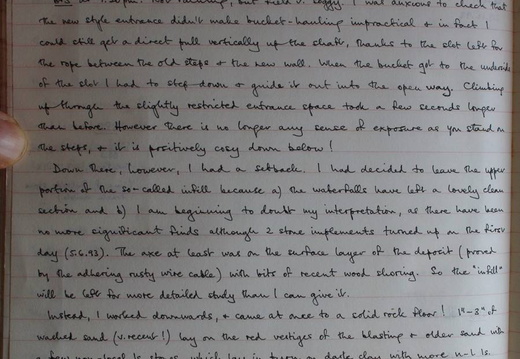 at 1.30pm. Not raining, but field v. soggy. I was anxious to check that
the new style entrance didn't make bucket-hauling impractical & in fact I
could still get a direct pull vertically up the shaft, thanks to the slot left for
the rope between the old steps & the new wall. When the bucket got to the underside
of the slot I had to step down & guide it out into the open way. Climbing
up through the slightly restricted entrance space took a few seconds longer
than before. However there is no longer any sense of exposure as you stand on
the steps, & it is positively cosy down below!
Down there, however, I had a setback. I had decided to leave the upper
portion of the so-called infill because a) the waterfalls have left a lovely clean
section and b) I am beginning to doubt my interpretation, as there have been
no more significant finds although 2 stone implements turned up on the first
day (5.6.93). The axe at least was on the surface layer of the deposit (proved
by the adhering rusty wire cable) with bits of recent wood shoring. So the "infill"
will be left for more detailed study than I can give it.
Instead, I worked downwards, & came at once to a solid rock floor! 1"-3" of
washed sand (v. recent!) lay on the red vestiges of the blasting & older sand with
a few local stones, which lay in turn on dark clay with more